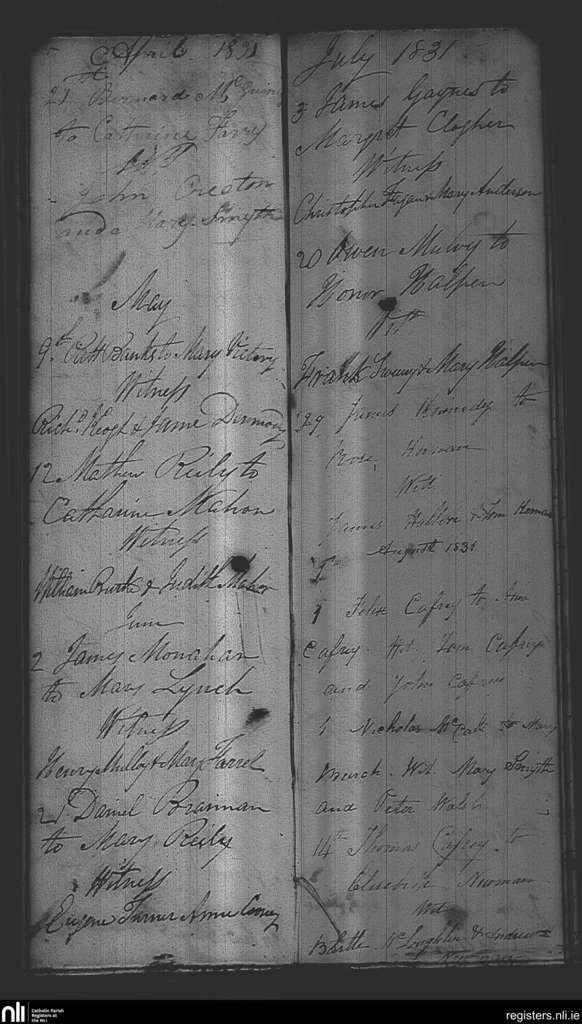 April 1831
21 Bernard McGuiny
to Catherine Farry
John Creeton
and Mary Smyth
May
9th Patt Banks to Mary Victory
Witness
Richd. Keogh & Jane Dermody
12 Mathew Reily to
Catharine Mahon
Witness
William Burke & Judith Mahon
June
2 James Monahan
to Mary Lynch
Witness
Henry & Mary Farrel
2 Daniel Brannan
to Mary Reily
Witness
Eugene Turner Anne
July 1831
3 James Gaynes to
Margret Clogher
Witness
Christopher Fagan & Mary Anderson
20 Owen Mulvy to
Honor Halpen
Witt
Frank Sweeny & Mary Halpen
29 James Kennedy to
Rose
Witt
James & Tom
August 1831
1 Felix Cafrey to Ann
Cafrey. Wit. Tom Cafrey
and John Cafrey
1 Nicholas McCabe to Mary
Wit. Mary Smyth
and Peter Walsh
14th Thomas Cafrey to
Elizabeth Newman
Wit
Bartle McLoughlin & Andrew
Newman
nli
Catholic Parish
Registers at
the NLI
registers.nli.ie